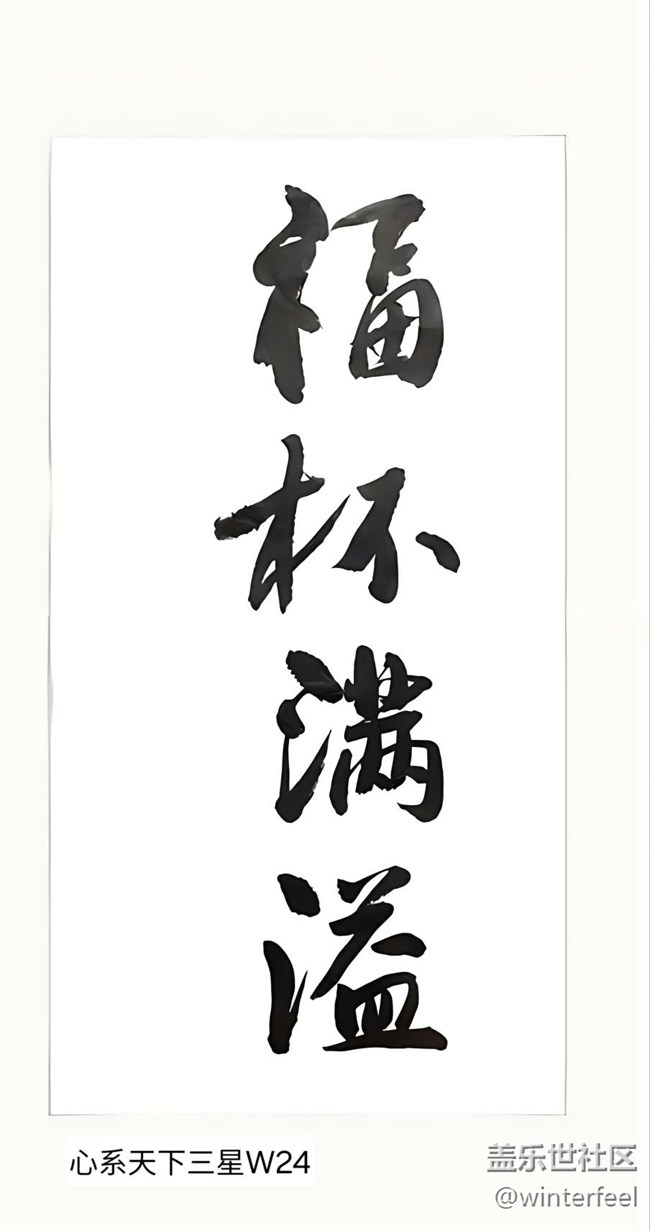 福杯满溢
心系天下三星W24
盖乐世社区
@winterfeel